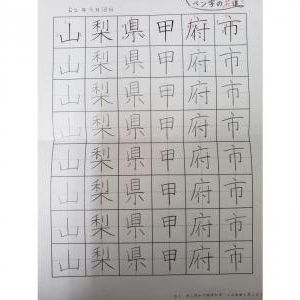 ペン字の花道
山梨県甲府市
山梨県甲府市
山梨県甲府市
山梨県甲府市
山梨県甲府市
山梨県甲府市
山梨県甲府市
山梨県甲府市